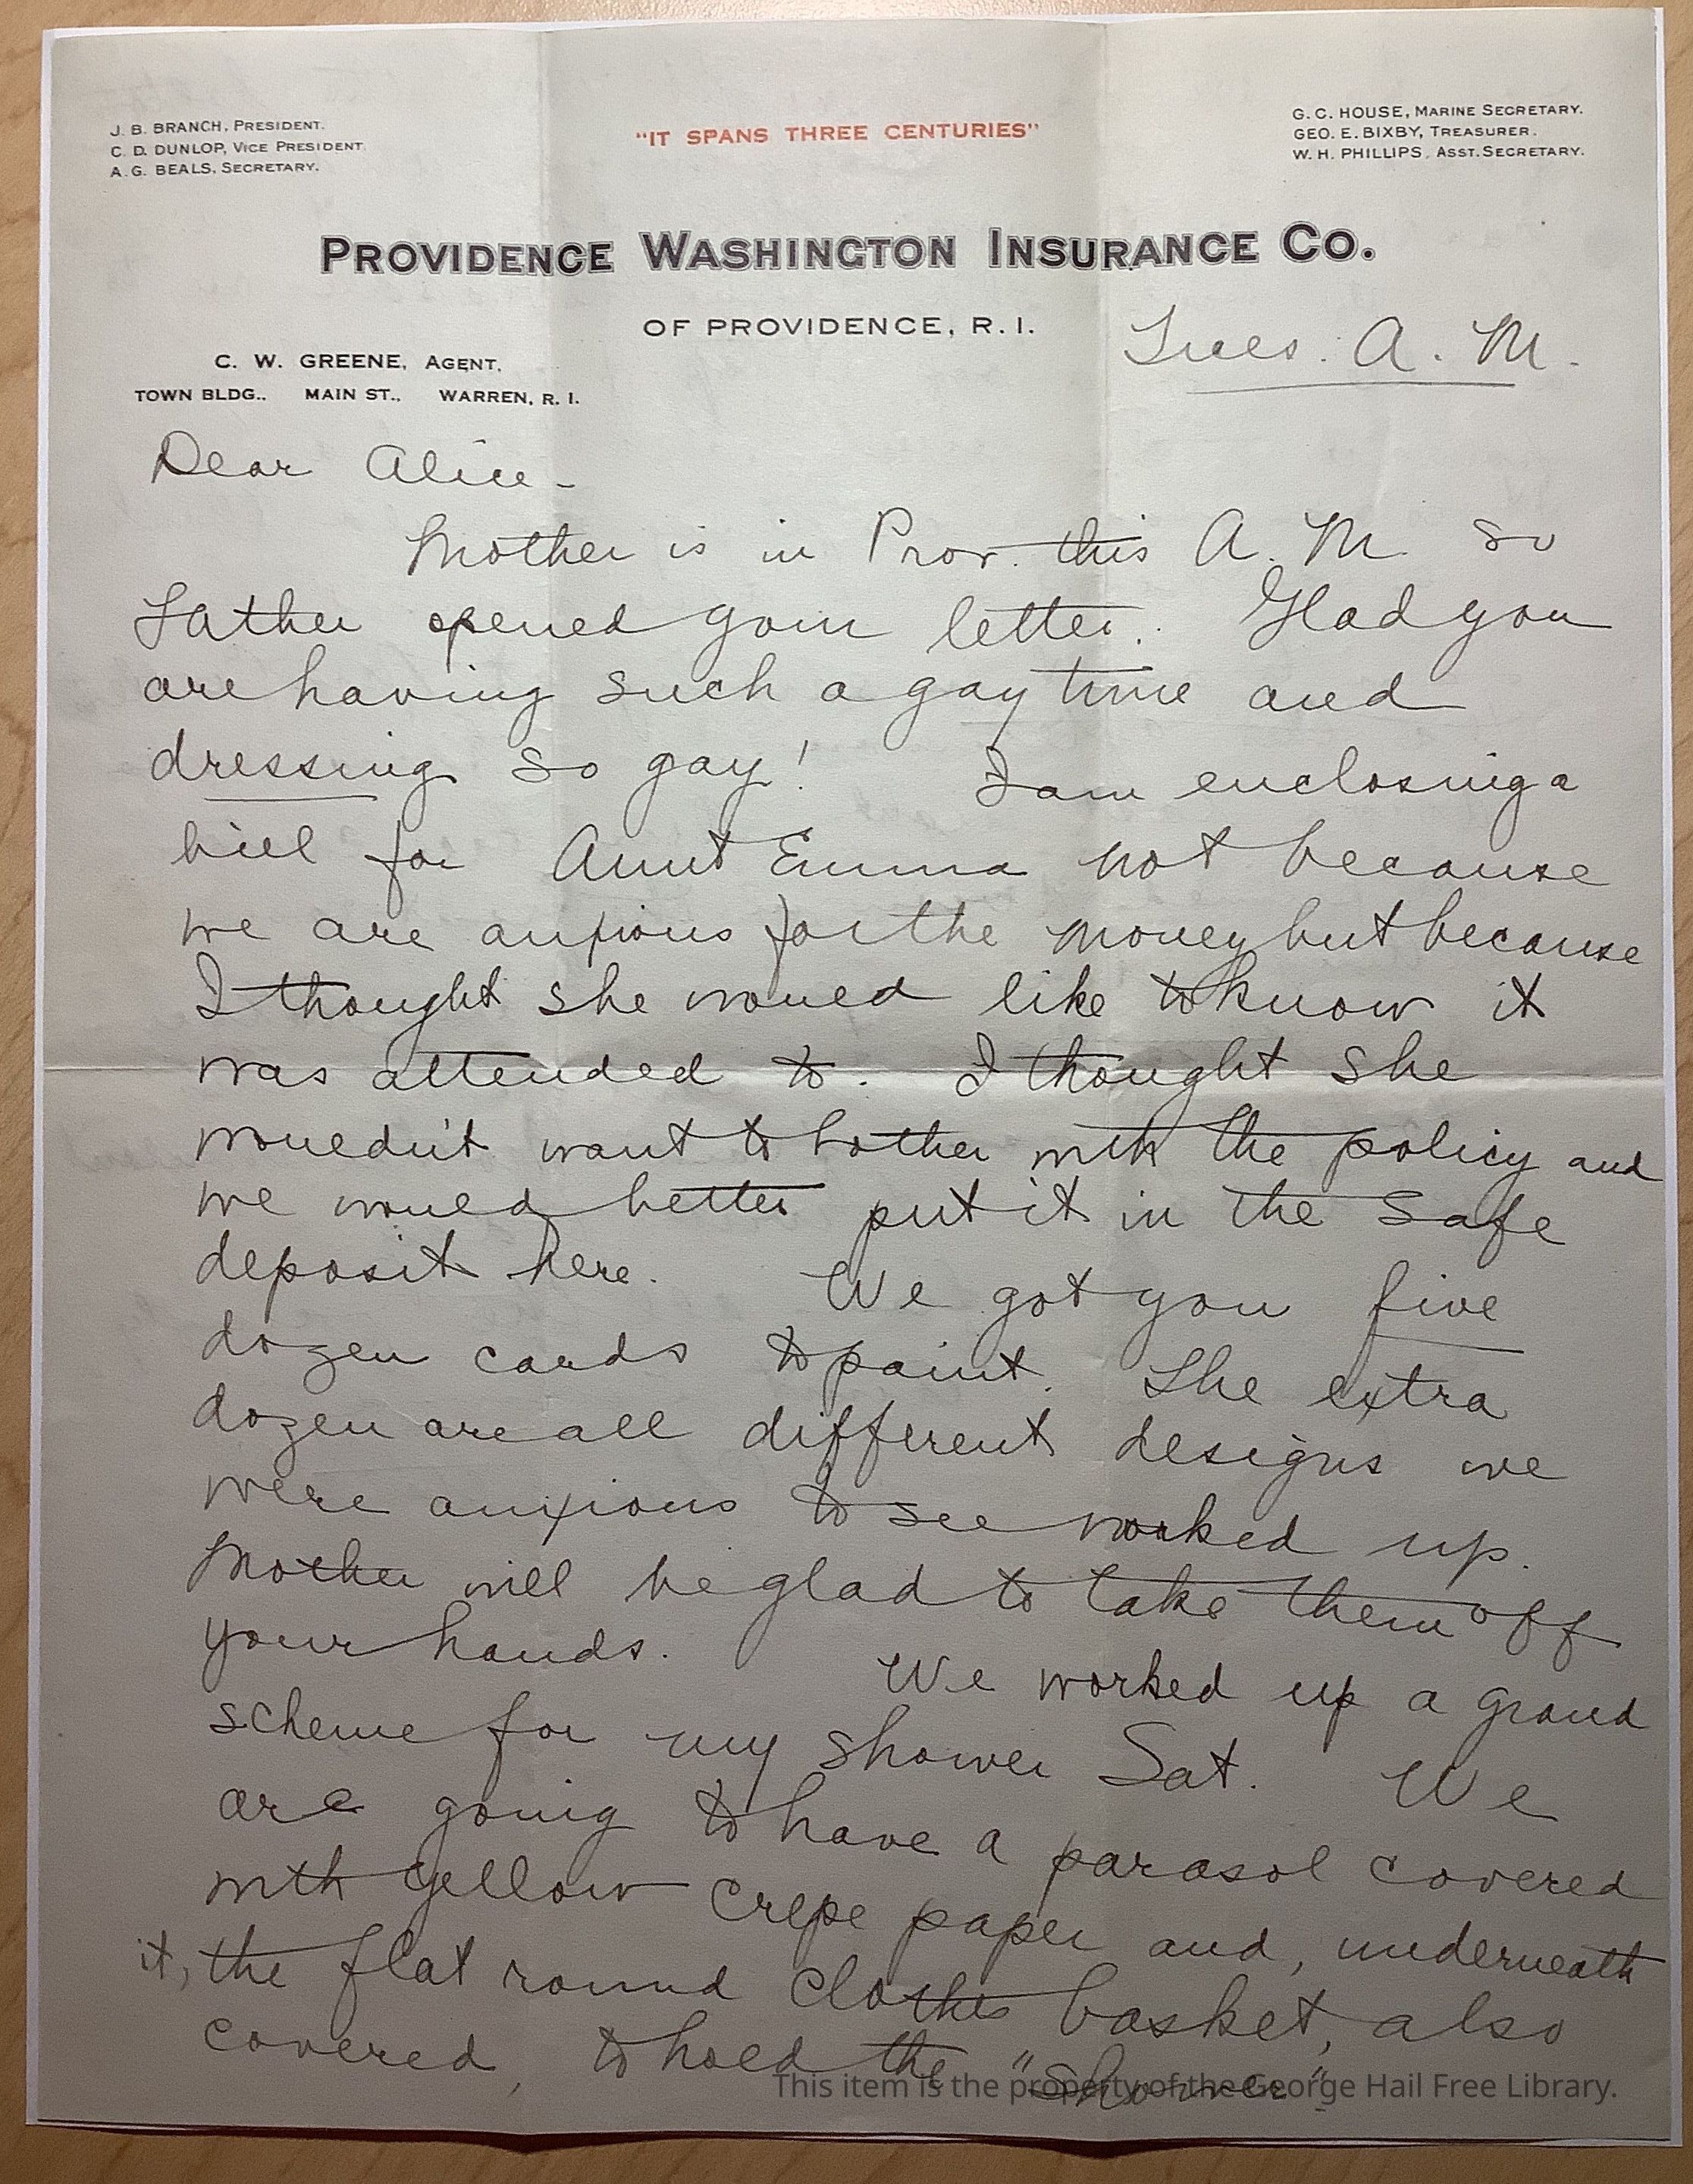 J. B. BRANCH, PRESIDENT.
C. D. DUNLOP, VICE PRESIDENT.
A. G. BEALS, SECRETARY.
"IT SPANS THREE CENTURIES"
G. C. HOUSE, MARINE SECRETARY.
GEO. E. BIXBY, TREASURER.
W. H. PHILLIPS, ASST. SECRETARY.
PROVIDENCE WASHINGTON INSURANCE CO.
OF PROVIDENCE, R. I.
C. W. GREENE, AGENT,
TOWN BLDG., MAIN ST., WARREN, R. I.
Tues. A. M.
Dear Alice -
Mother is in Prov. this A. M. so
Father opened your letter. Glad you
are having such a gay time and
dressing so gay! I am enclosing a
bill for Aunt Emma not because
we are anxious for the money but because
I thought she would like to know it
was attended to. I thought she
wouldn't want to bother with the policy and
we would better put it in the safe
deposit here. We got you five
dozen cards to paint. The extra
dozen are all different designs we
were anxious to see worked up.
Mother will be glad to take them off
your hands. We worked up a grand
scheme for my shower Sat. We
are going to have a parasol covered
with yellow crepe paper and, underneath
it, the flat round clothes basket, also
covered, to hold the "shower".
This item is the property of the George Hail Free Library.